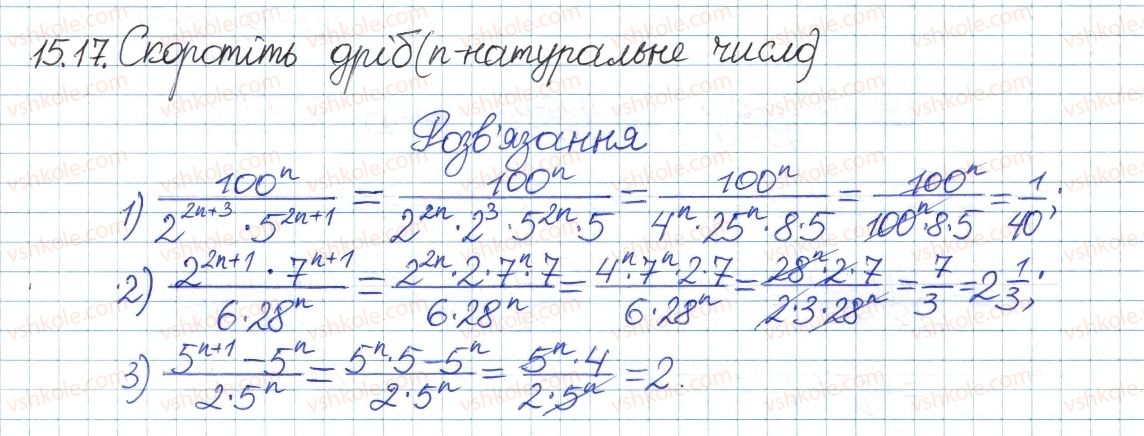 15.17. Скоротіть дріб (n-натуральне число)
Розв'язання
1) 100^n / (2^(2n+3) · 5^(2n+1)) = 100^n / (2^(2n) · 2^3 · 5^(2n) · 5) = 100^n / (4^n · 25^n · 8 · 5) = 100^n / (100^n · 8 · 5) = 1/40;
2) (2^(2n+1) · 7^(n+1)) / (6 · 28^n) = (2^(2n) · 2 · 7^n · 7) / (6 · 28^n) = (4^n · 7^n · 2 · 7) / (6 · 28^n) = (28^n · 2 · 7) / (2 · 3 · 28^n) = 7/3 = 2 1/3;
3) (5^(n+1) − 5^n) / (2 · 5^n) = (5^n · 5 − 5^n) / (2 · 5^n) = (5^n · 4) / (2 · 5^n) = 2.
vshkole.com